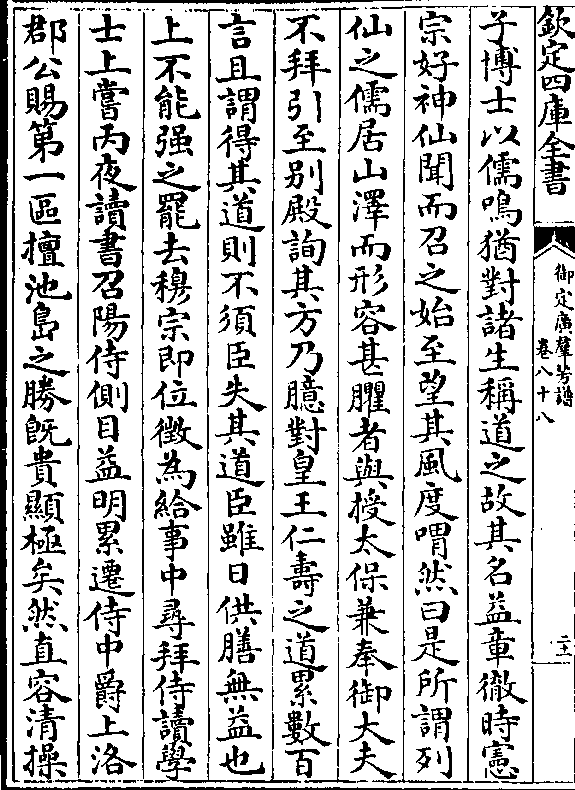 欽定四庫全書
御定廣羣芳譜
卷八十八
子博士以儒鳴猶對諸生稱道之故其名益章徹時憲
宗好神仙聞而召之始至望其風度喟然曰是所謂列
仙之儒居山澤而形容甚臞者與授太保兼奉御大夫
不拜引至别殿詢其方乃臆對皇王仁壽之道累數百
言且謂得其道則不須臣失其道臣雖日供膳無益也
上不能强之罷去穆宗即位徵為給事中尋拜侍讀學
士上嘗丙夜讀書召陽侍側目益明累遷侍中爵上洛
郡公賜第一區擅池島之勝旣貴顯極矣然直容清操